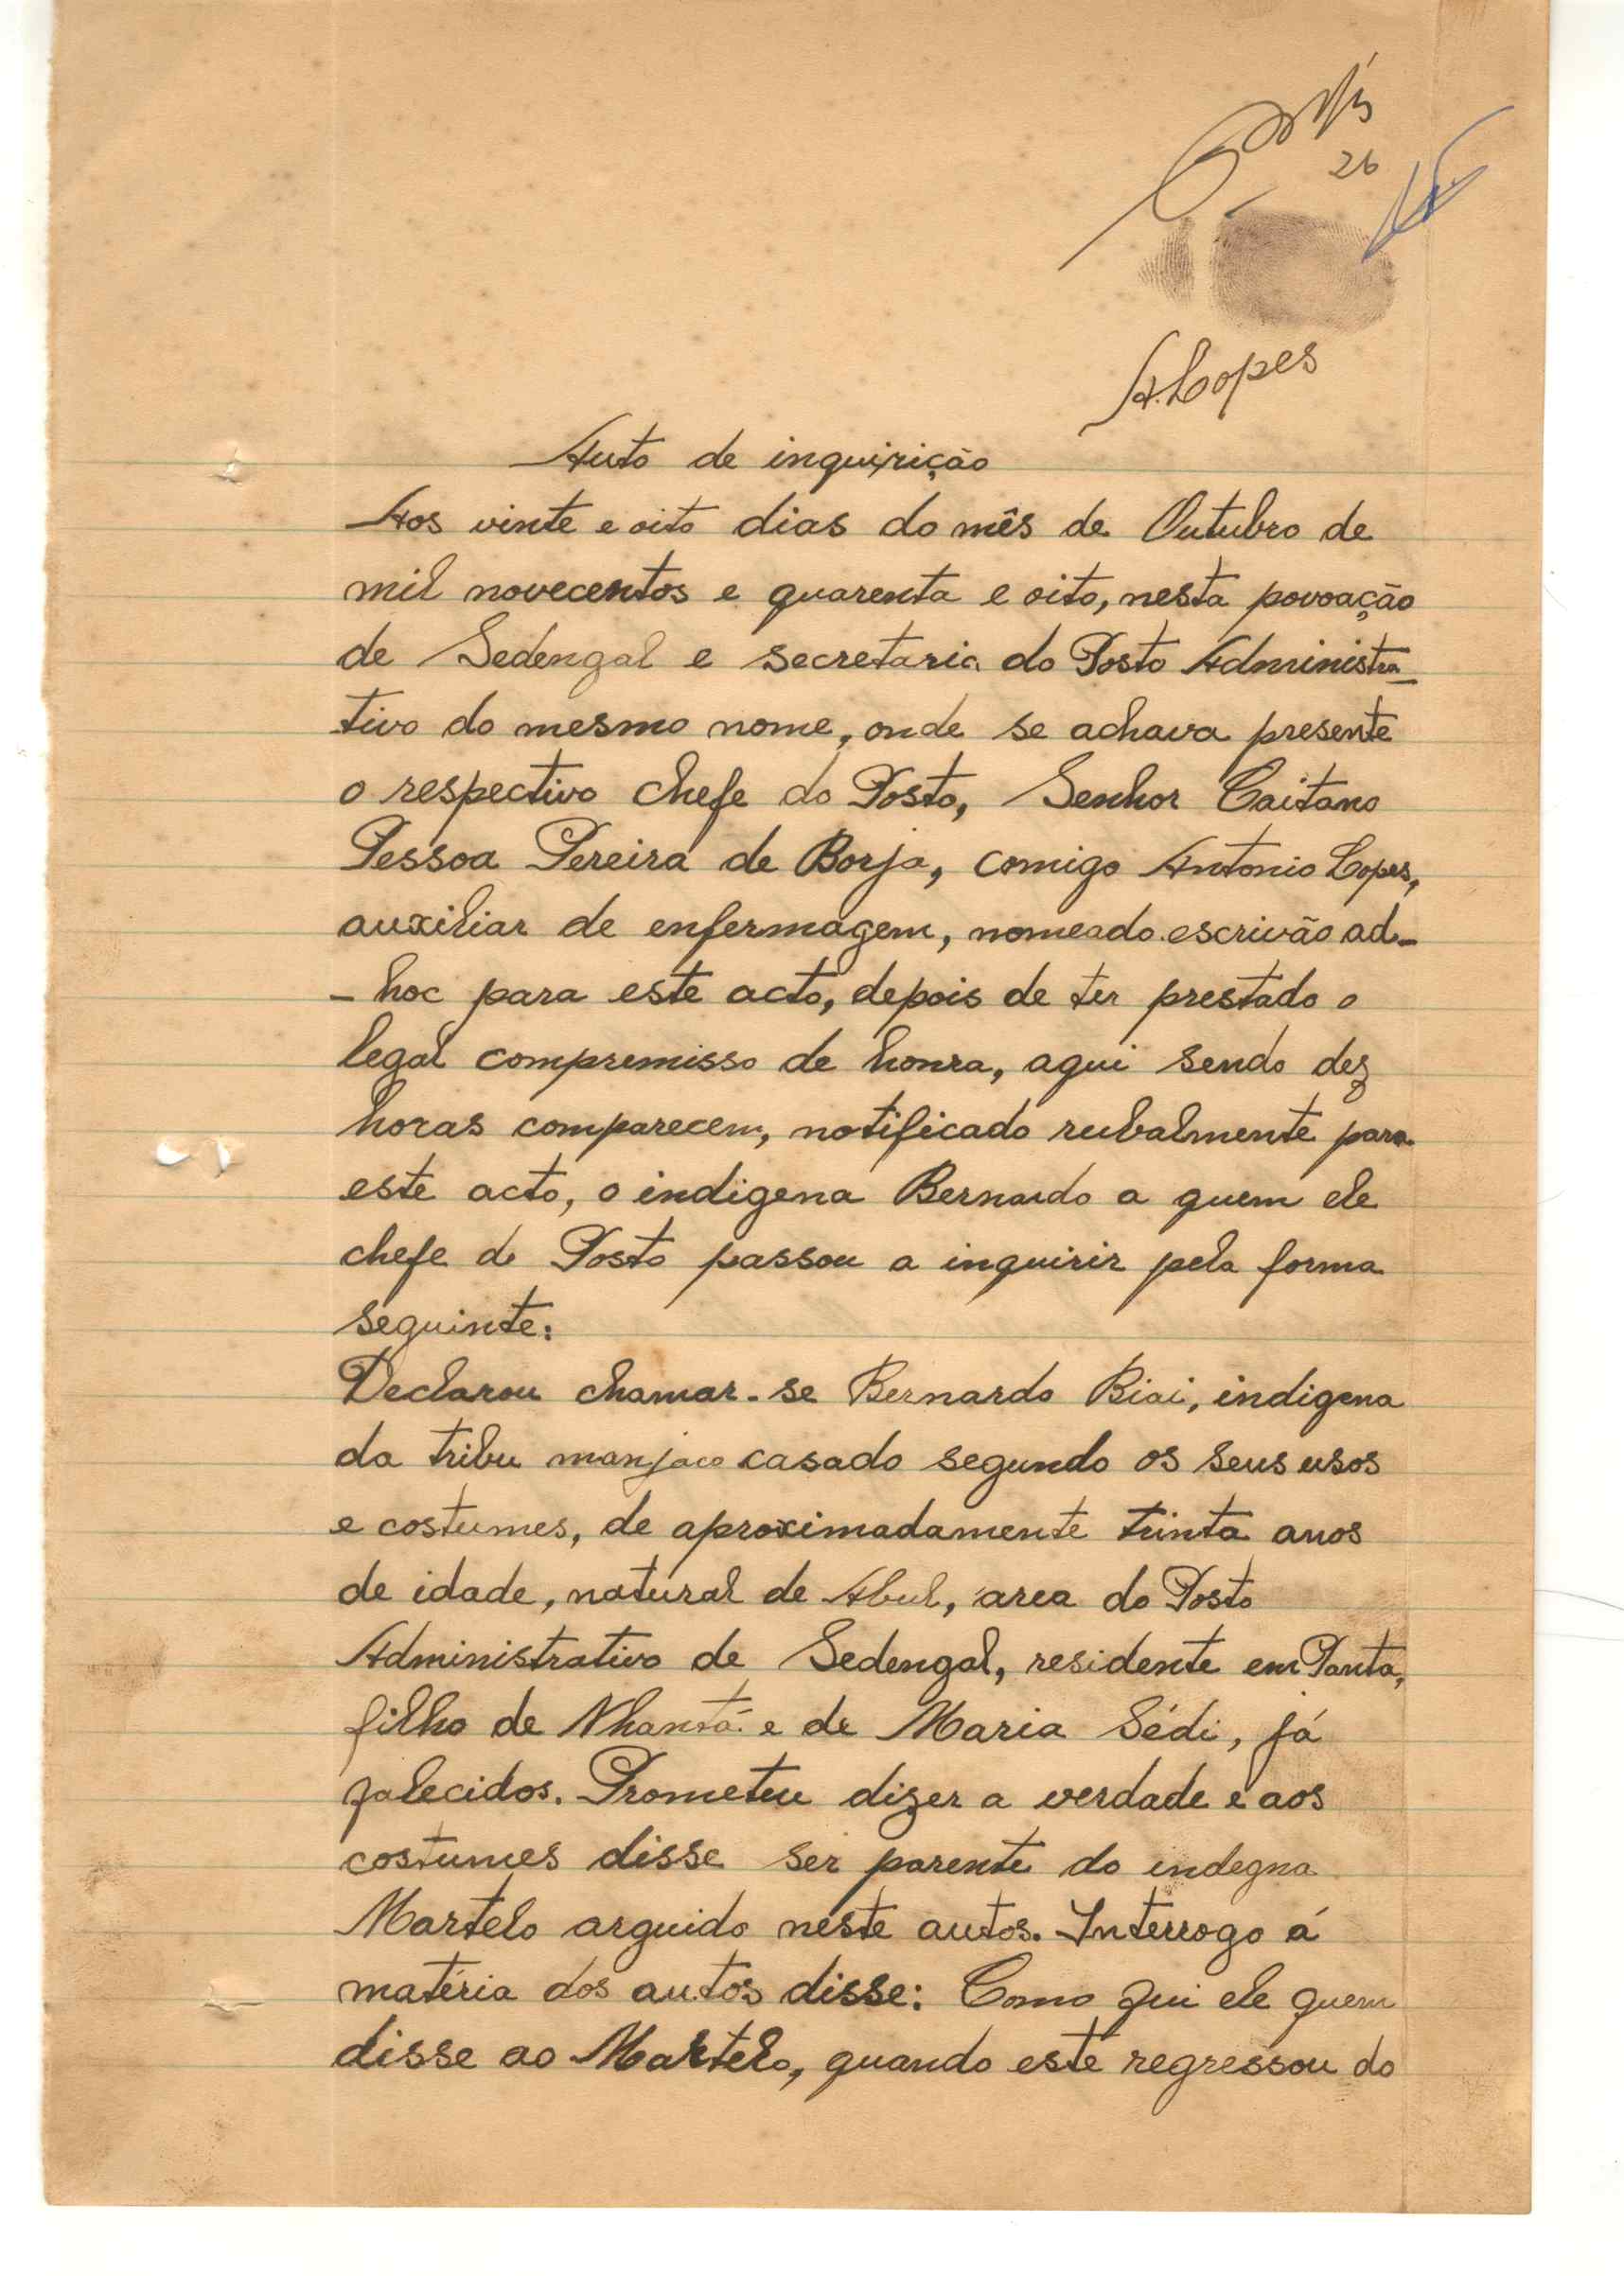 26
A. Lopes
Auto de inquirição
Aos vinte e oito dias do mês de Outubro de
mil novecentos e quarenta e oito, nesta povoação
de Sedengal e secretaria do Posto Administra-
tivo do mesmo nome, onde se achava presente
o respectivo chefe do Posto, Senhor Caitano
Pessoa Pereira de Borja, comigo Antonio Lopes,
auxiliar de enfermagem, nomeado escrivão ad-
-hoc para este acto, depois de ter prestado o
legal compremisso de honra, aqui sendo dez
horas comparecem, notificado rubalmente para
este acto, o indigena Bernardo a quem ele
chefe do Posto passou a inquirir pela forma
seguinte:
Declarou chamar-se Bernardo Biai, indigena
da tribu manjaco casado segundo os seus usos
e costumes, de aproximadamente trinta anos
de idade, natural de Abul, área do Posto
Administrativo de Sedengal, residente em Panta,
filho de Nhantá e de Maria Sédi, já
falecidos. Prometeu dizer a verdade e aos
costumes disse ser parente do indegna
Martelo arguido neste autos. Interrogo á
matéria dos autos disse: Como fui ele quem
disse ao Martelo, quando este regressou do